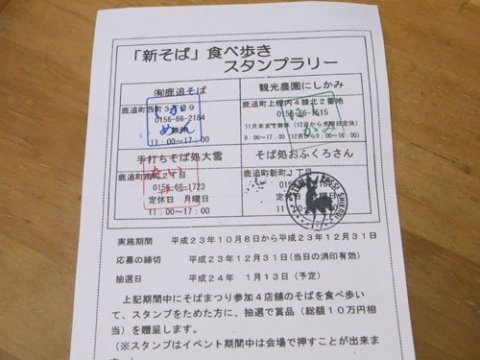 「新そば」食べ歩き
スタンプラリー
㈲鹿追そば
鹿追町西町3丁目9
0156-66-2184
11:00〜17:00
観光農園にしかみ
鹿追町上幌内4線北2番地
0156-66-1615
9:00〜17:00
手打ちそば処大雪
鹿追町南町2丁目
0156-66-1723
定休日 月曜日
11:00〜17:00
そば処おふくろさん
鹿追町新町1丁目
定休日 月曜日
11:00〜
実施期間 平成23年10月8日から平成23年12月31日
応募の締切 平成23年12月31日(当日の消印有効)
抽選日 平成24年 1月13日(予定)
上記期間中にそばまつり参加4店舗のそばを食べ歩い
て、スタンプをためた方に、抽選で賞品(総額10万円相
当)を贈呈します。
(※スタンプはイベント期間中は会場で押すことが出来ま
す。)